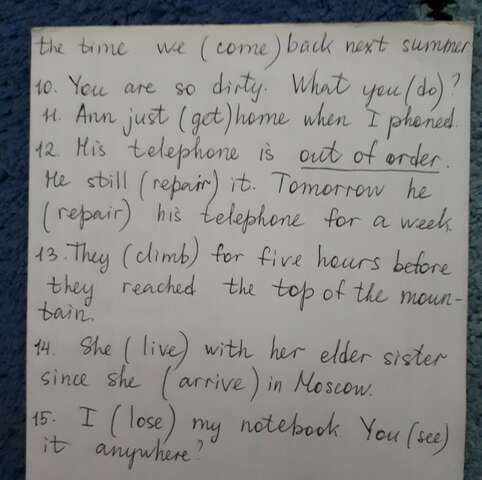 the time we (come) back next summer
10. You are so dirty. What you (do)?
11. Ann just (get) home when I phoned.
12. His telephone is out of order.
He still (repair) it. Tomorrow he
(repair) his telephone for a week.
13. They (climb) for five hours before
they reached the top of the moun-
tain.
14. She (live) with her elder sister
since she (arrive) in Moscow.
15. I (lose) my notebook. You (see)
it anywhere?